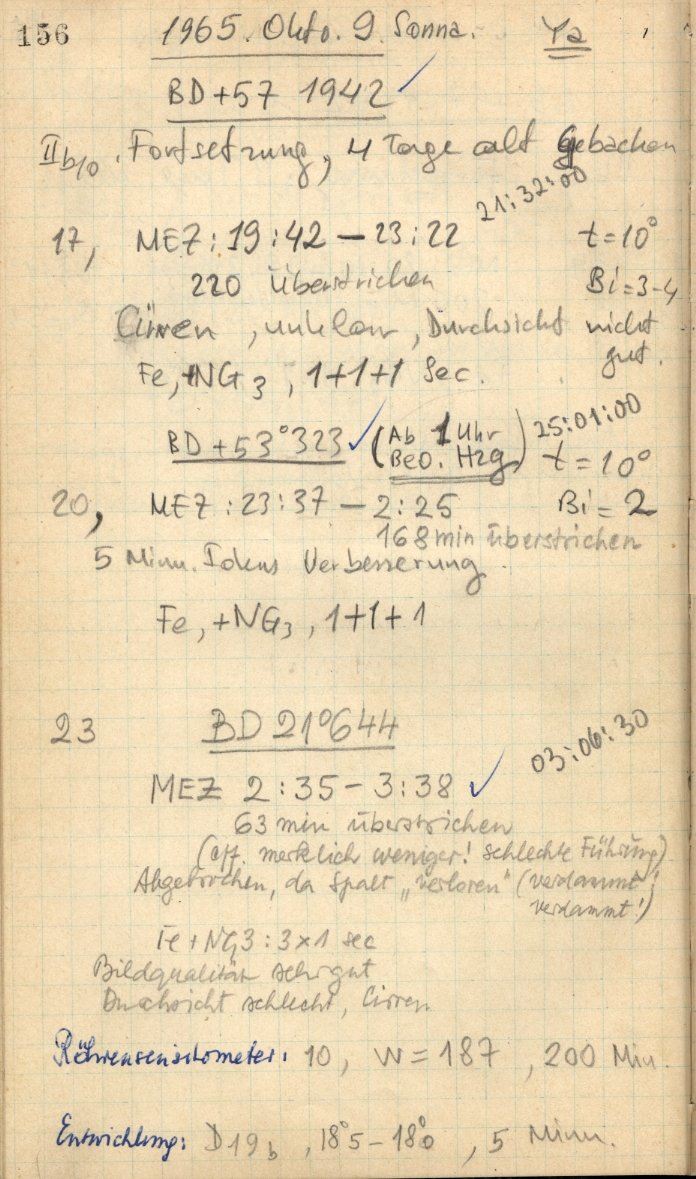 156 1965. Okto. 9. Sonna. Ya
BD+57 1942 ✓
IIb/o. Fortsetzung, 4 Tage alt Gebacken
21:32:00
17, MEZ: 19:42 – 23:22 t=10°
220 überstrichen Bi=3-4
Cirren, unklar, Durchsicht nicht
gut.
Fe,+NG3, 1+1+1 Sec.
BD+53°323 ✓ (Ab 1 Uhr
Beo. Hzg) 25:01:00
t=10°
20, MEZ: 23:37 – 2:25 Bi=2
168 min überstrichen
5 Minu. Fokus Verbesserung
Fe,+NG3, 1+1+1
23 BD 21°644
03:06:30
MEZ 2:35 – 3:38 ✓
63 min überstrichen
(eff. merklich weniger! schlechte Führung)
Abgebrochen, da Spalt „verloren“ (verdammt!
verdammt!)
Fe+NG3: 3×1 sec
Bildqualität sehr gut
Durchsicht schlecht, Cirren
Röhrensensitometer: 10, W=187, 200 Min.
Entwicklung: D19b, 18°5–18°0, 5 Minu.